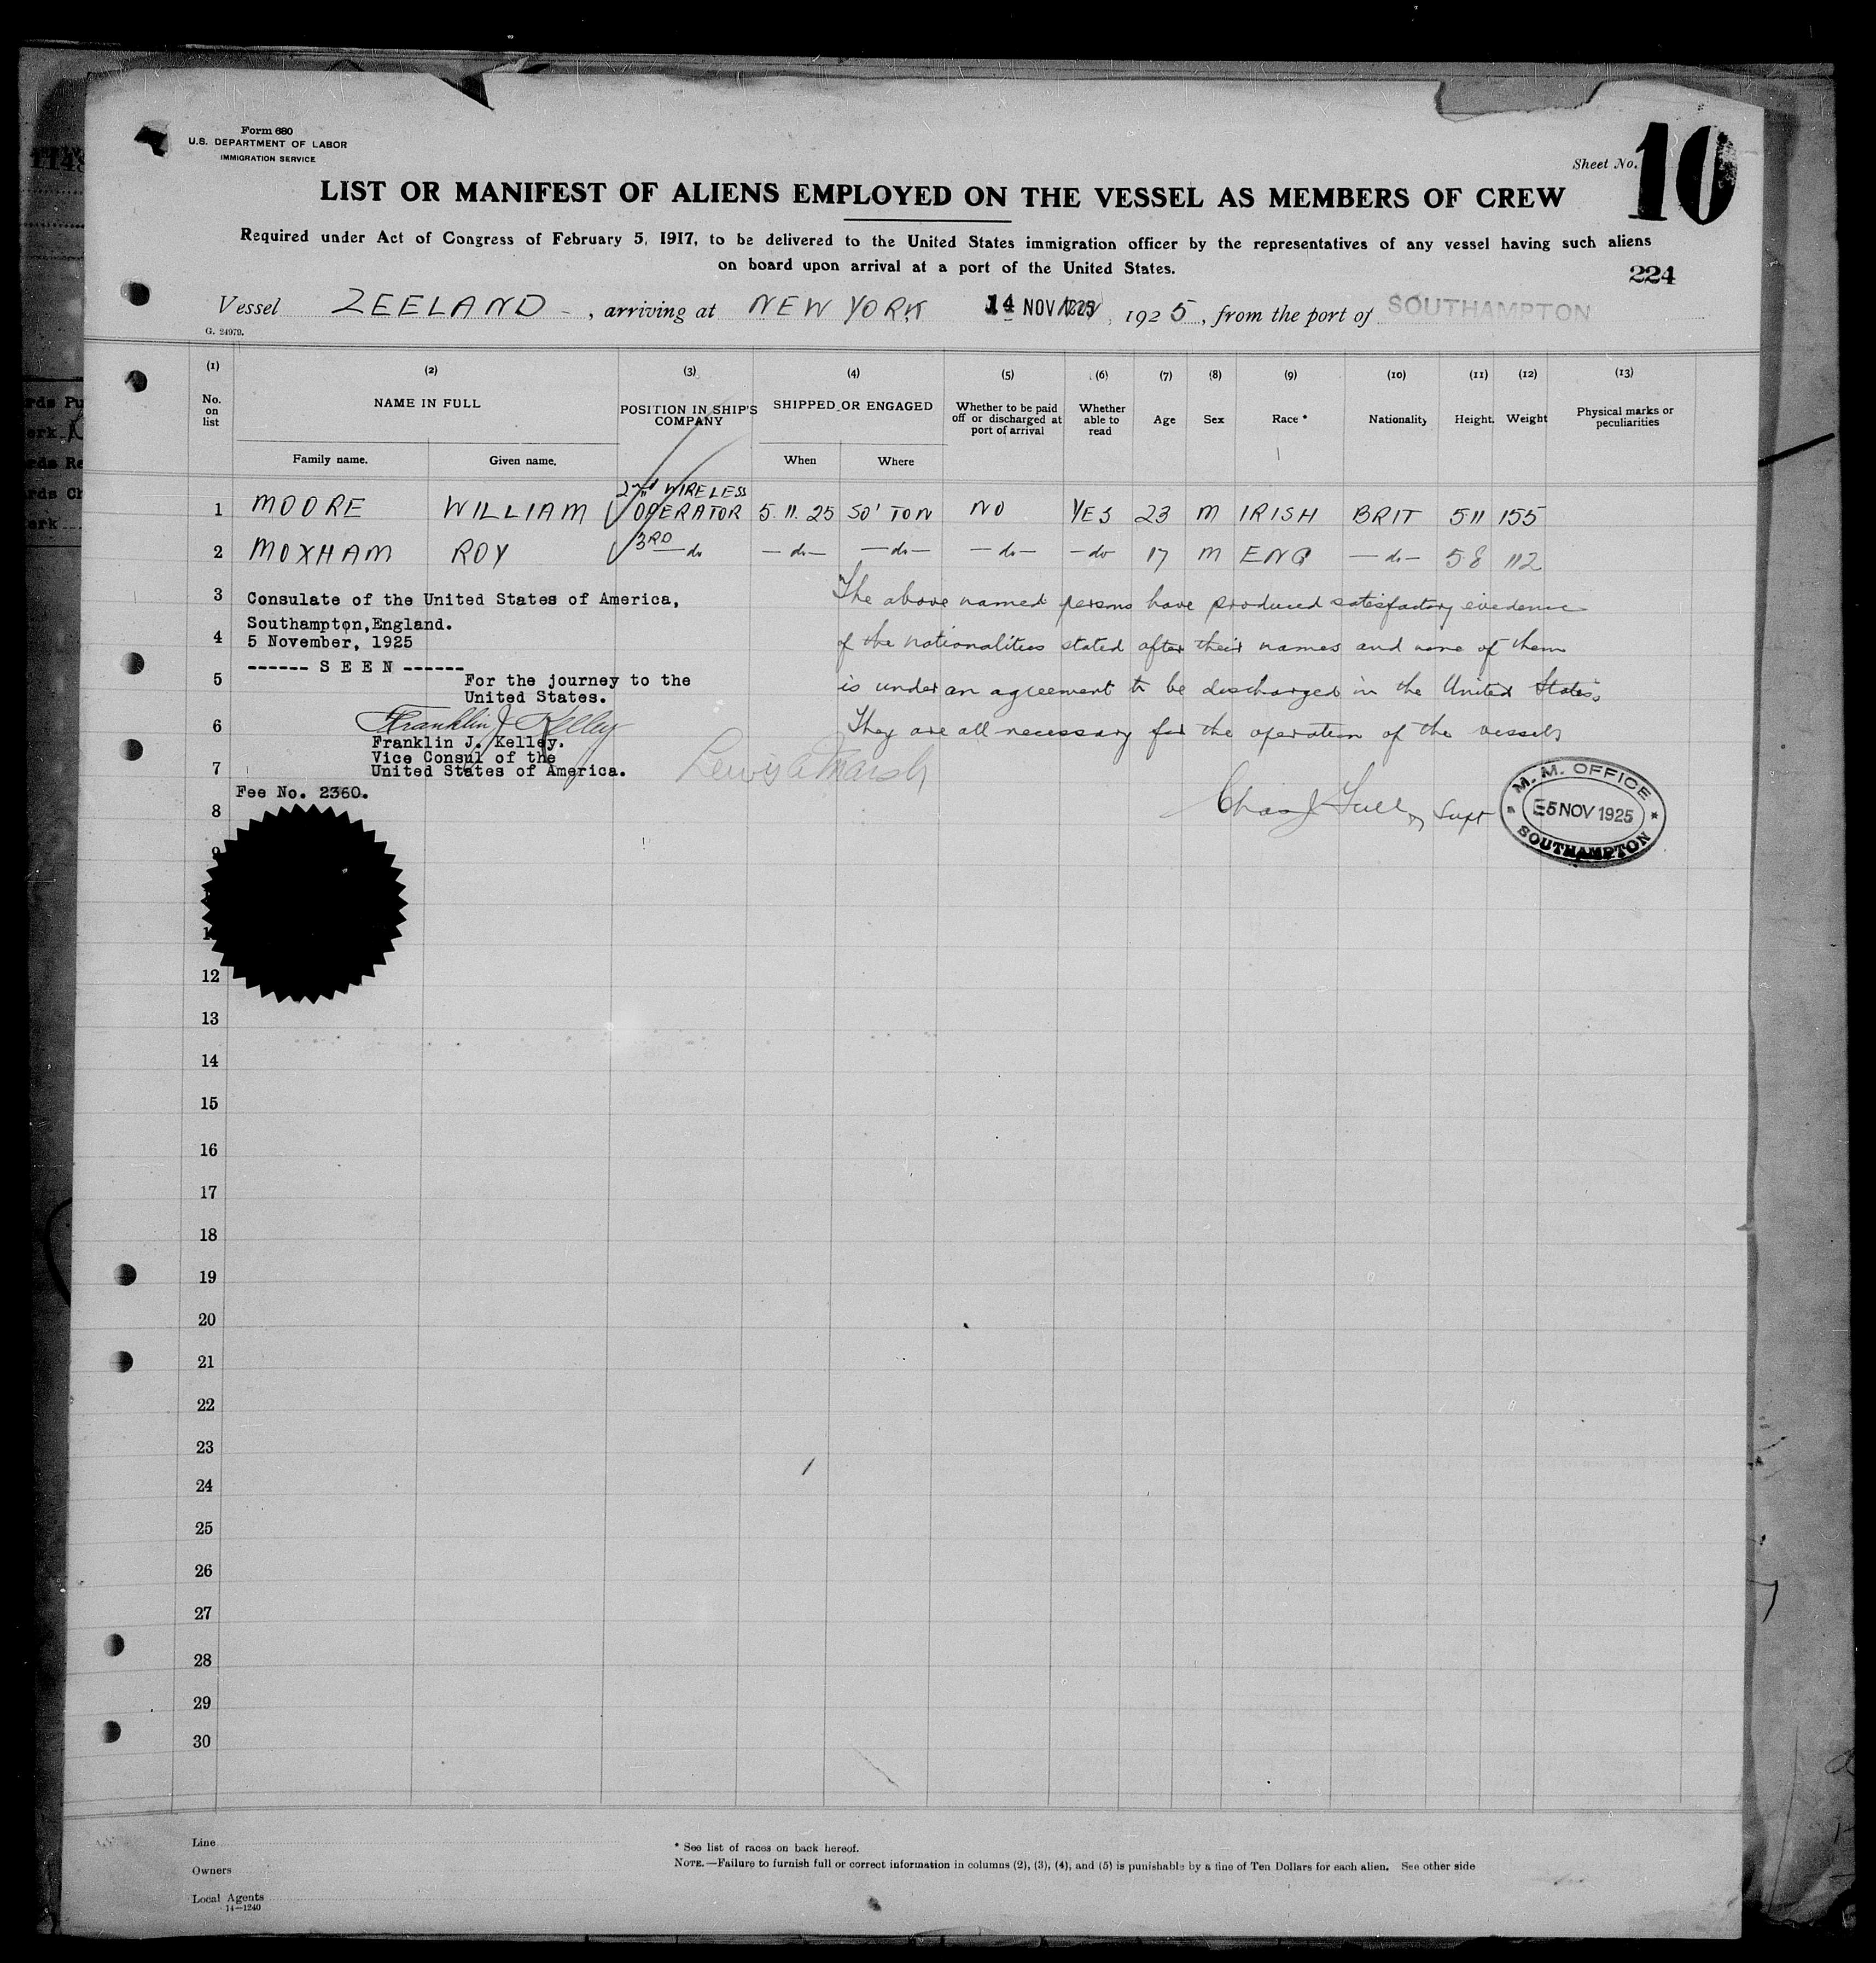 Form 680
U.S. DEPARTMENT OF LABOR
IMMIGRATION SERVICE
Sheet No. 10
LIST OR MANIFEST OF ALIENS EMPLOYED ON THE VESSEL AS MEMBERS OF CREW
Required under Act of Congress of February 5, 1917, to be delivered to the United States immigration officer by the representatives of any vessel having such aliens
on board upon arrival at a port of the United States.
224
Vessel ZEELAND, arriving at NEW YORK 14 NOV 1925, 1925, from the port of SOUTHAMPTON
G. 24979.
(1) (2) (3) (4) (5) (6) (7) (8) (9) (10) (11) (12) (13)
No. on list NAME IN FULL POSITION IN SHIP'S COMPANY SHIPPED OR ENGAGED Whether to be paid off or discharged at port of arrival Whether able to read Age Sex Race * Nationality Height. Weight Physical marks or peculiarities
Family name. Given name. When Where
1 MOORE WILLIAM 2nd WIRELESS OPERATOR 5.11.25 SO'TON NO YES 23 M IRISH BRIT 5 11 155
2 MOXHAM ROY 3RD —do —do— —do— —do— —do 17 M ENG —do— 5 8 112
3 Consulate of the United States of America, The above named persons have produced satisfactory evidence
Southampton,England.
4 5 November, 1925 of the nationalities stated after their names and none of them
------ S E E N ------
5 For the journey to the is under an agreement to be discharged in the United States.
United States.
6 Franklin J Kelley They are all necessary for the operation of the vessels
Franklin J. Kelley.
Vice Consul of the
7 United States of America. Lewis A Marsh
Fee No. 2360.
8 Supt
M. M. OFFICE
5 NOV 1925
SOUTHAMPTON
12
13
14
15
16
17
18
19
20
21
22
23
24
25
26
27
28
29
30
Line
Owners
Local Agents
14—1240
* See list of races on back hereof.
NOTE.—Failure to furnish full or correct information in columns (2), (3), (4), and (5) is punishable by a fine of Ten Dollars for each alien. See other side